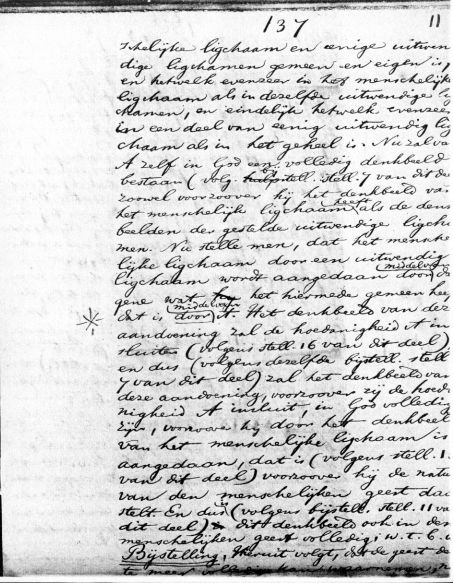 137
11
schelijke ligchaam en eenige uitwen
dige ligchamen gemeen en eigen is,
en hetwelk evenzeer in het menschelijke
ligchaam als in dezelfde uitwendige lig
chamen, en eindelijk hetwelk evenzeer
in een deel van eenig uitwendig lig
chaam als in het geheel is. Nu zal van
A zelf in God een volledig denkbeeld
bestaan (volg. stell. 7 van dit deel
zoowel voorzoover hij het denkbeeld van
het menschelijke ligchaam heeft als de denk
beelden der gestelde uitwendige ligcha
men. Nu stelle men, dat het mensche
lijke ligchaam door een uitwendig
ligchaam wordt aangedaan door middel van
gene wat het hiermede gemeen hee
dat is door middel van A. Het denkbeeld van deze
aandoening zal de hoedanigheid A in
sluiten (volgens stell. 16 van dit deel)
en dus (volgens dezelfde bijstell. stell.
7 van dit deel) zal het denkbeeld van
deze aandoening, voorzoover zij de hoeda
nigheid A insluit, in God volledig
zijn, voorzoover hij door het denkbeeld
van het menschelijke ligchaam is
aangedaan, dat is (volgens stell. 1
van dit deel) voorzoover hij de natu
van den menschelijken geest daar
stelt En dus (volgens bijstell. stell. 11 va
dit deel) is dit denkbeeld ook in den
menschelijken geest volledig; w. t. b. w
Bijstelling, Hieruit volgt, dat de geest de
te meer